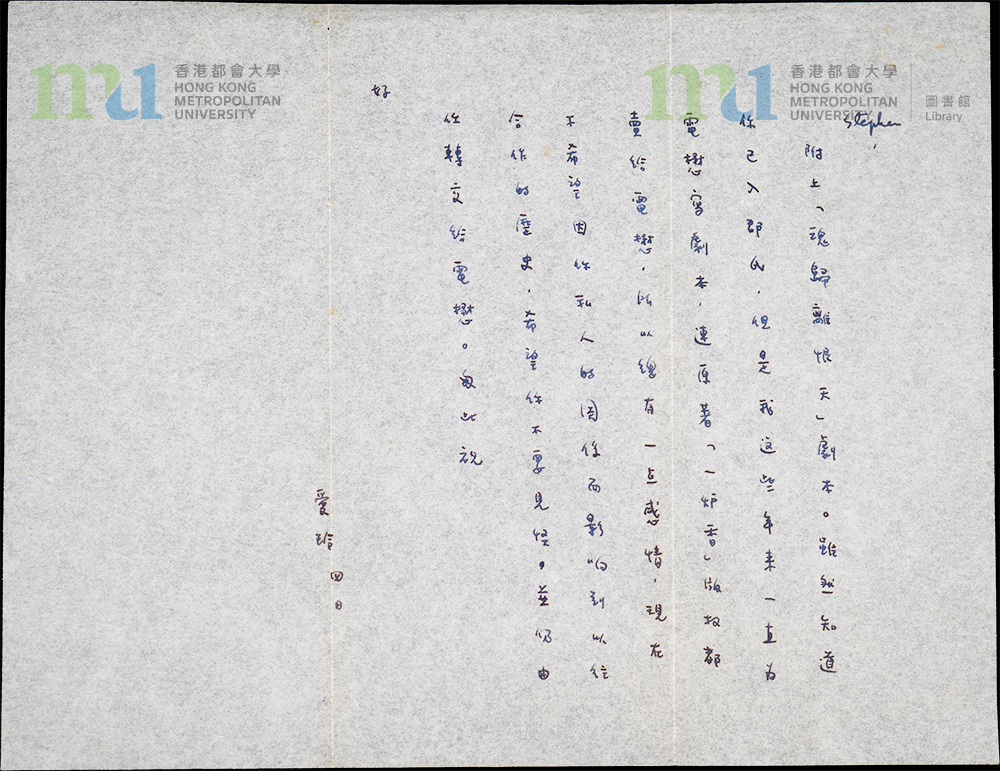 香港都會大學
HONG KONG
METROPOLITAN
UNIVERSITY
香港都會大學
HONG KONG
METROPOLITAN
UNIVERSITY
圖書館
Library
Stephen,
附上「魂歸離恨天」劇本。雖然知道
你已入邵氏，但是我這些年来一直为
電懋寫劇本，連原著「一炉香」版权都
賣给電懋，所以總有一点感情，現在
不希望因你私人的関係而影响到以往
合作的歷史，希望你不要見怪。並仍由
你轉交给電懋。匆此祝
好
愛玲 四日